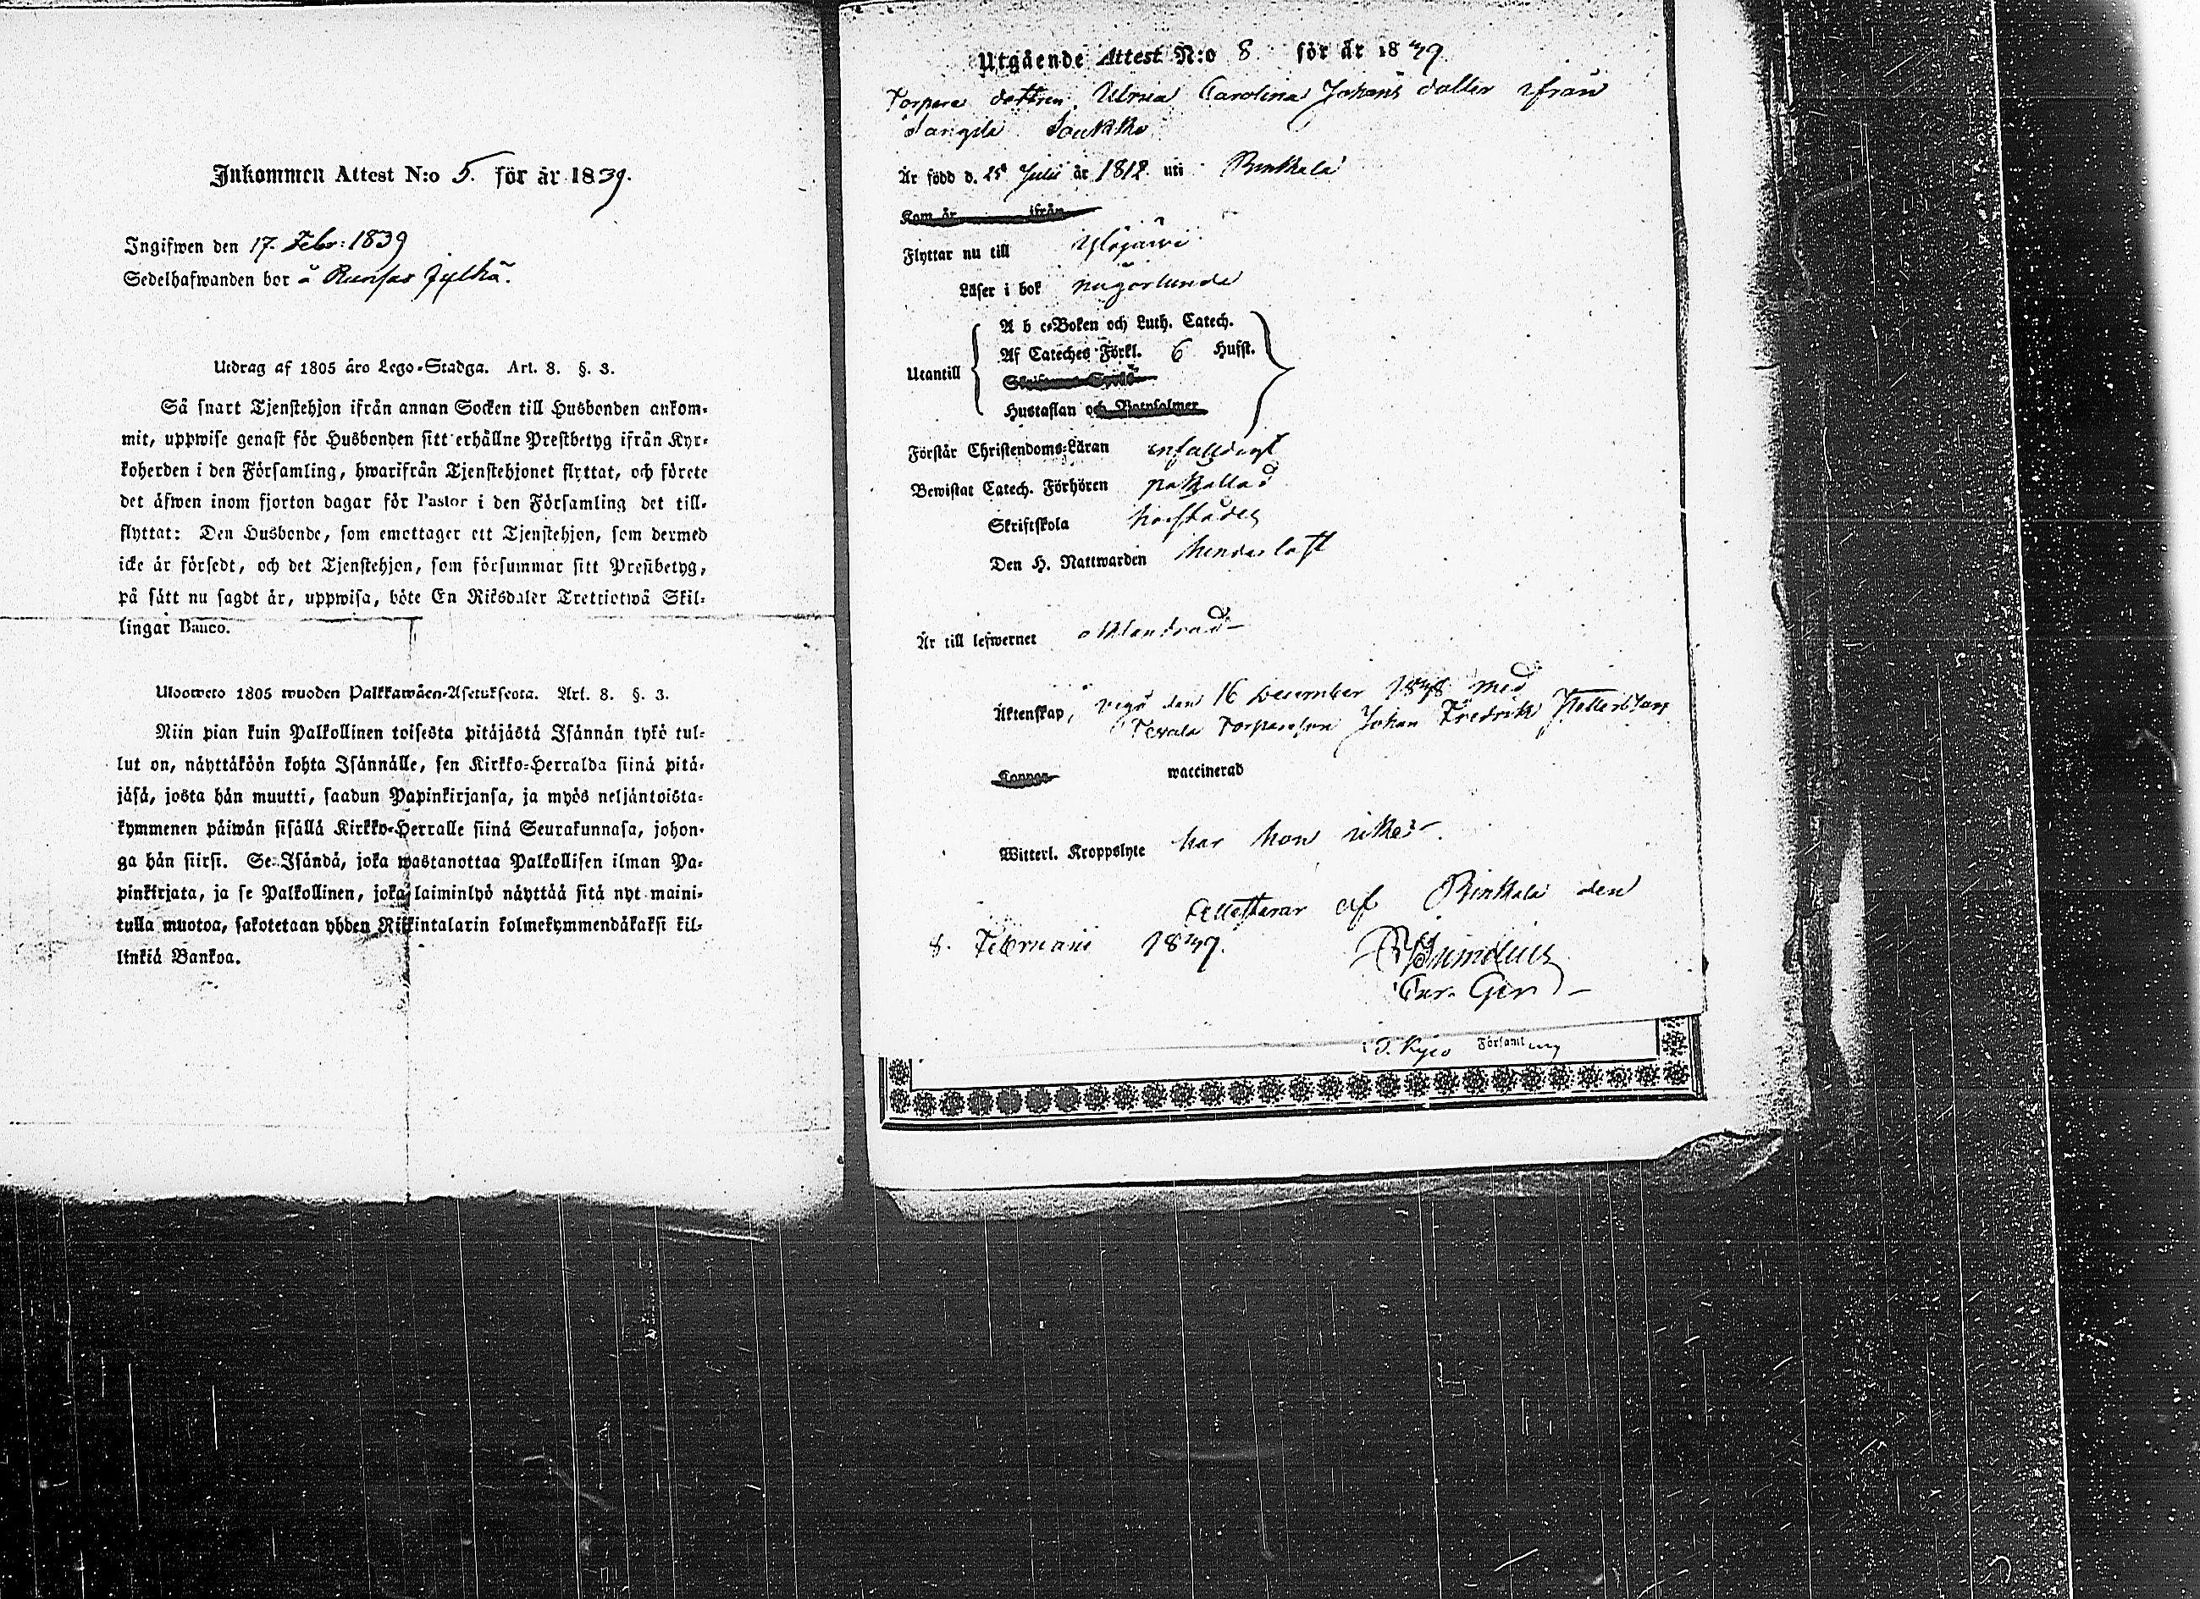 Inkommen Attest N:o 5. för år 1839.
Ingifwen den 17. Febr: 1839
Sedelhafwanden bor å Runsas Jylhä.
Utdrag af 1805 åro Lego-Stadga. Art. 8. §. 3.
Så snart Tjenstehjon ifrån annan Socken till Husbonden ankom-
mit, uppwise genast för Husbonden sitt erhållne Prestbetyg ifrån Kyr-
koherden i den Församling, hwarifrån Tjenstehjonet flyttat, och förete
det äfwen inom fjorton dagar för Pastor i den Församling det till-
flyttat: Den Husbonde, som emottager ett Tjenstehjon, som dermed
icke är försedt, och det Tjenstehjon, som försummar sitt Prestbetyg,
på sätt nu sagdt är, uppwisa, böte En Riksdaler Trettiotwå Skil-
lingar Banco.
Uloowето 1805 wuoden Palkkawäen-Asetuksesta. Art. 8. §. 3.
Niin pian kuin Palkollinen toisesta pitäjästä Isännän tykö tul-
lut on, näyttäköön kohta Isännälle, sen Kirkko-Herralda siinä pitä-
jäsä, josta hän muutti, saadun Papinkirjansa, ja myös neljäntoista-
kymmenen päiwän sisällä Kirkko-Herralle siinä Seurakunnasa, johon-
ga hän siirsi. Se Isändä, joka wastanottaa Palkollisen ilman Pa-
pinkirjata, ja se Palkollinen, joka laiminlyö näyttää sitä nyt maini-
tulla muotoa, sakotetaan yhden Riikintalarin kolmekymmendäkaksi kil-
linkiä Bankoa.
Utgående Attest N:o 8 för år 1839
Torpare dottren Ulrica Carolina Johans dotter ifrån
Sangila Soukko
Är född d. 25 Julii år 1812 uti Birkkala
Kom år ifrån
Flyttar nu till Ylöjärvi
Läser i bok någorlunda
A b c-Boken och Luth. Catech.
Af Cateches Förkl. 6 Hufst.
Utantill
Hustaflan och Botpsalmer
Förstår Christendoms-Läran enfaldigt
Bewistat Catech. Förhören påkallad
Skriftskola
Den H. Nattwarden
Är till lefwernet oklandrad
Äktenskap, vigd den 16 December 1838 med
Torparesson Johan Fredrik
Koppor waccinerad
Witterl. Kroppslyte har hon icke
Attesterar af Birkkala den
8. Februarii 1839.
Församling